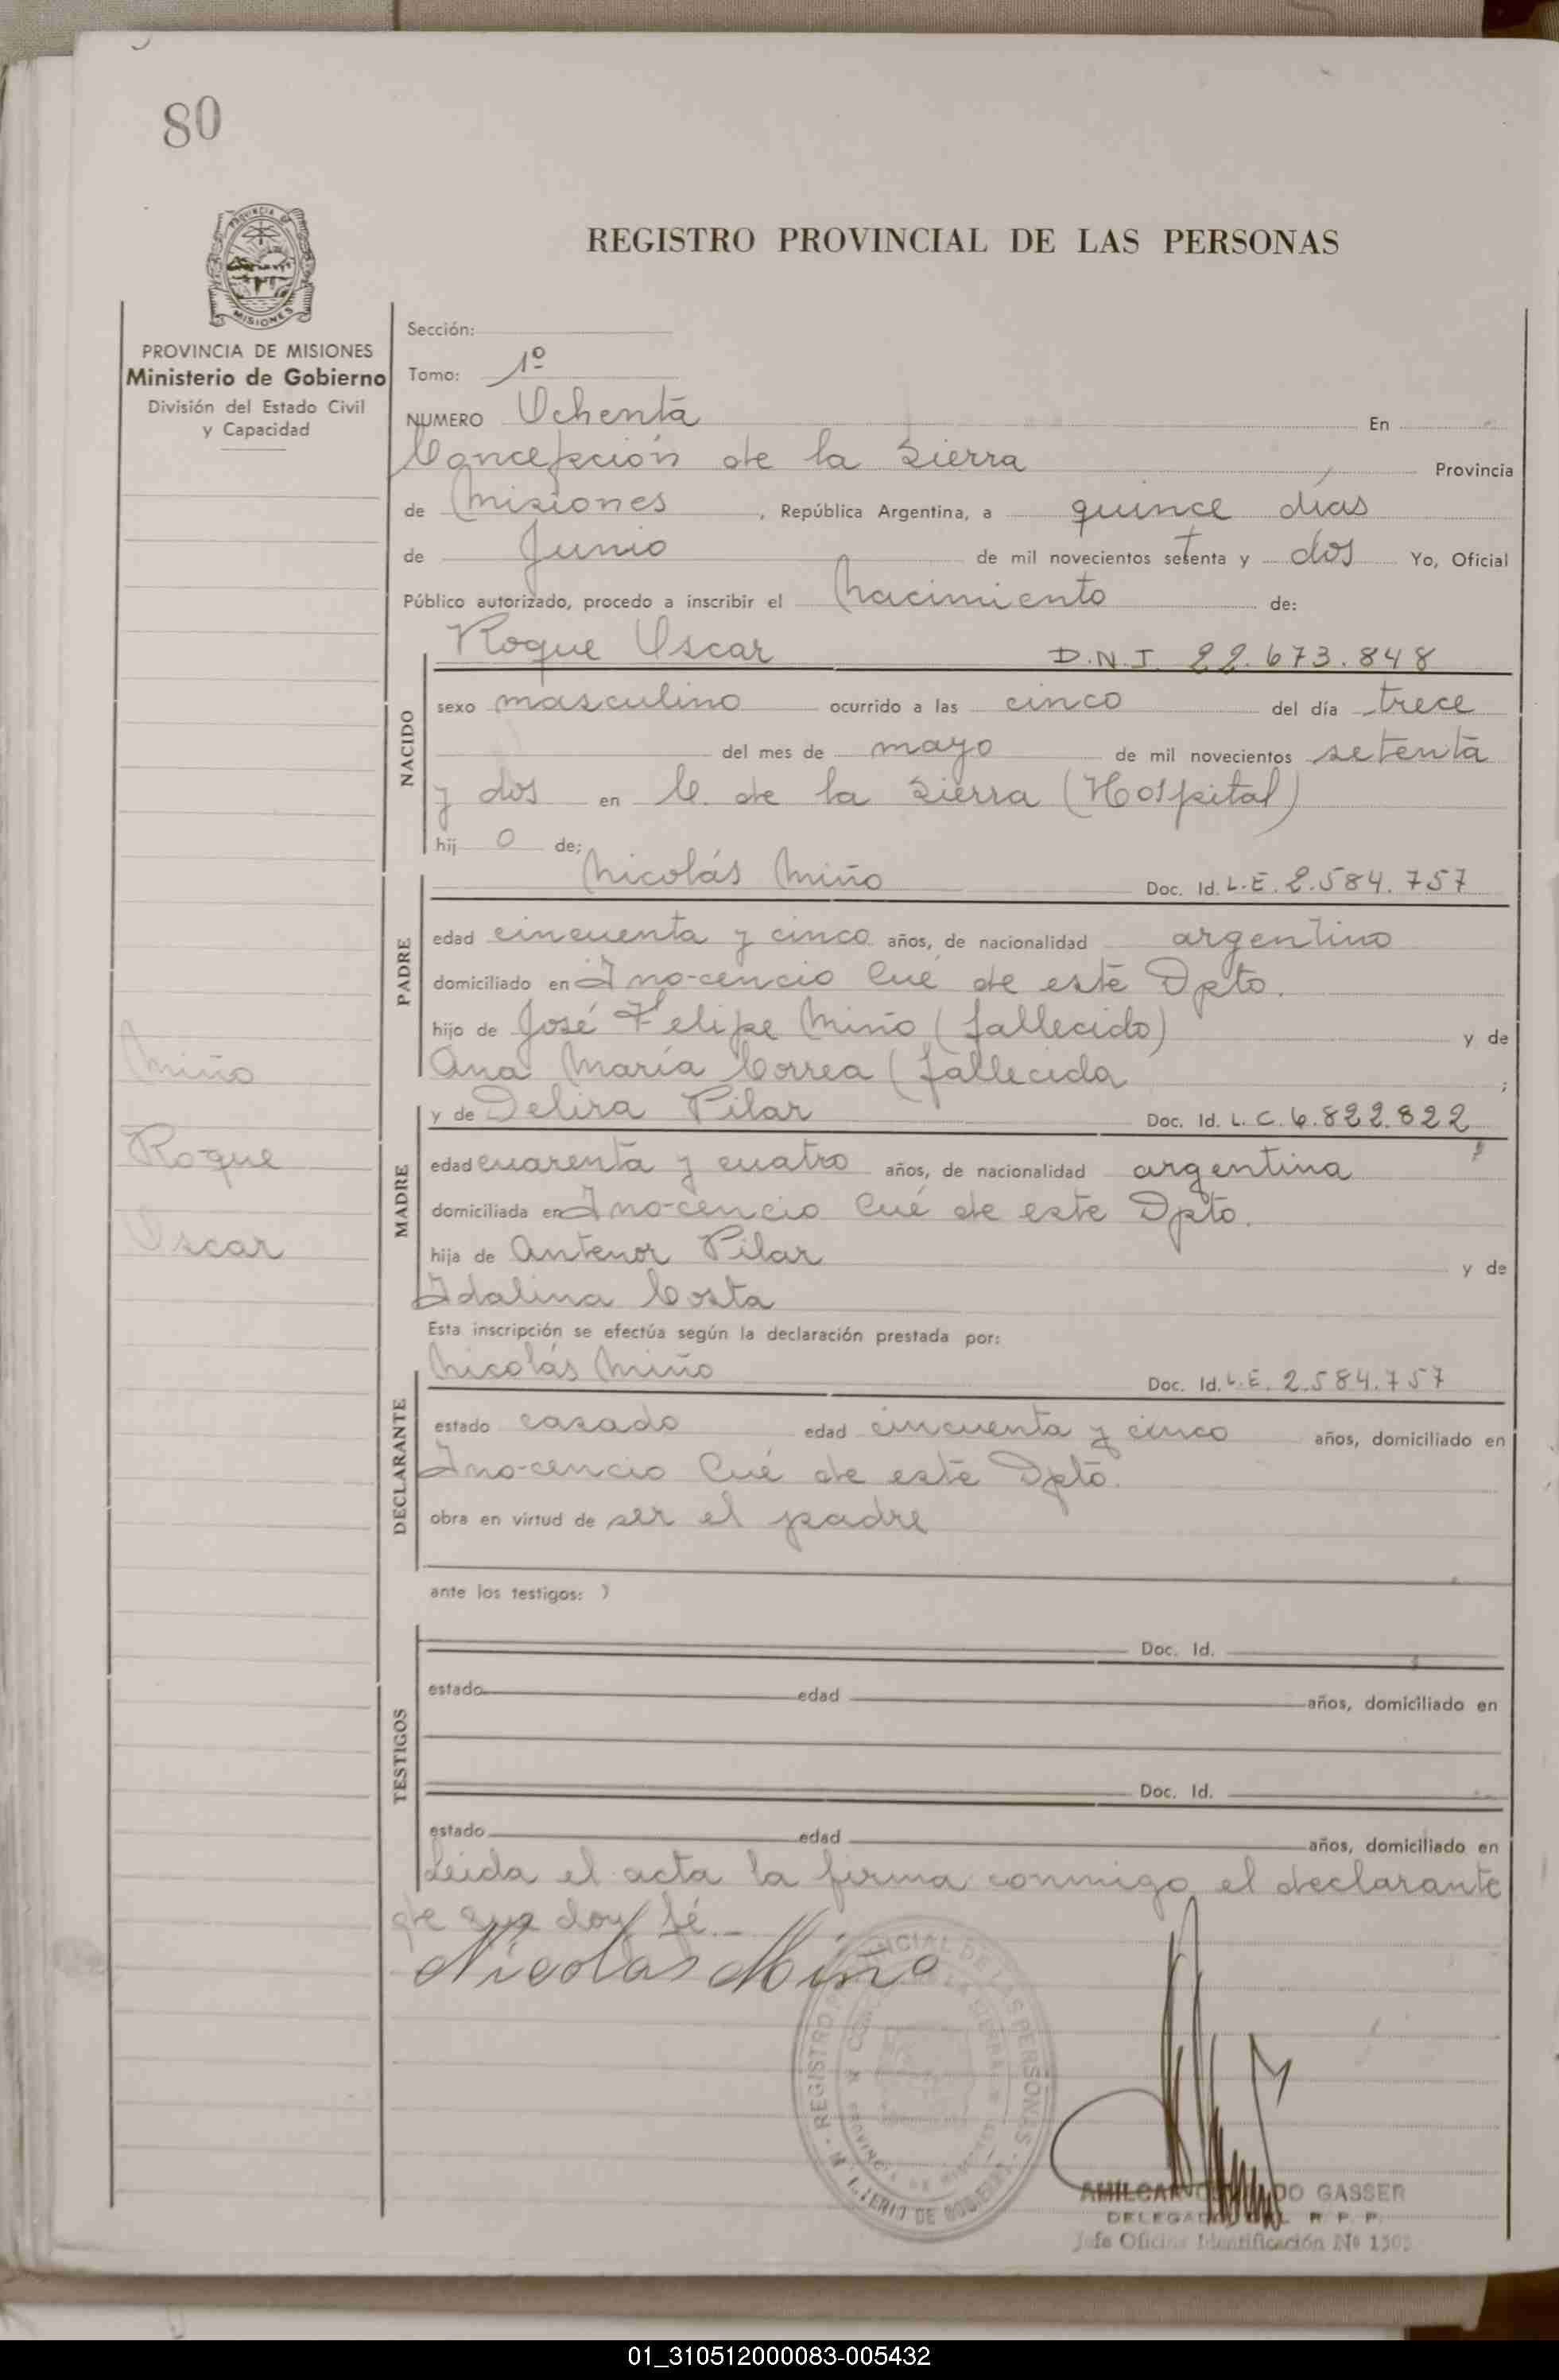 80
PROVINCIA DE MISIONES
PROVINCIA DE MISIONES
Ministerio de Gobierno
División del Estado Civil
y Capacidad
Miño
Roque
Oscar
REGISTRO PROVINCIAL DE LAS PERSONAS
Sección:
Tomo: 1º
NUMERO Ochenta En
Concepción de la Sierra Provincia
de Misiones, República Argentina, a quince días
de Junio de mil novecientos setenta y dos Yo, Oficial
Público autorizado, procedo a inscribir el Nacimiento de:
Roque Oscar D.N.I. 22.673.848
NACIDO
sexo masculino ocurrido a las cinco del día trece
del mes de mayo de mil novecientos setenta
y dos en C. de la Sierra (Hospital)
hij o de;
Nicolás Miño Doc. Id. L.E. 2.584.757
PADRE
edad cincuenta y cinco años, de nacionalidad argentino
domiciliado en Ino-cencio Cué de este Dpto.
hijo de José Felipe Miño (fallecido) y de
Ana María Correa (fallecida ;
y de Delira Pilar Doc. Id. L.C. 6.822.822
MADRE
edad cuarenta y cuatro años, de nacionalidad argentina
domiciliada en Ino-cencio Cué de este Dpto.
hija de Antenor Pilar y de
Idalina Costa
Esta inscripción se efectúa según la declaración prestada por:
Nicolás Miño Doc. Id. L.E. 2.584.757
DECLARANTE
estado casado edad cincuenta y cinco años, domiciliado en
Ino-cencio Cué de este Dpto.
obra en virtud de ser el padre
ante los testigos: )
TESTIGOS
Doc. Id.
estado edad años, domiciliado en
Doc. Id.
estado edad años, domiciliado en
Leida el acta la firma conmigo el declarante
de que doy fé.
Nicolas Miño
REGISTRO PROVINCIAL DE LAS PERSONAS
MINISTERIO DE GOBIERNO
AMILCAR DO GASSER
DELEGADO DEL R. P. P.
Jefe Oficina Identificación Nº 1505
01_310512000083-005432